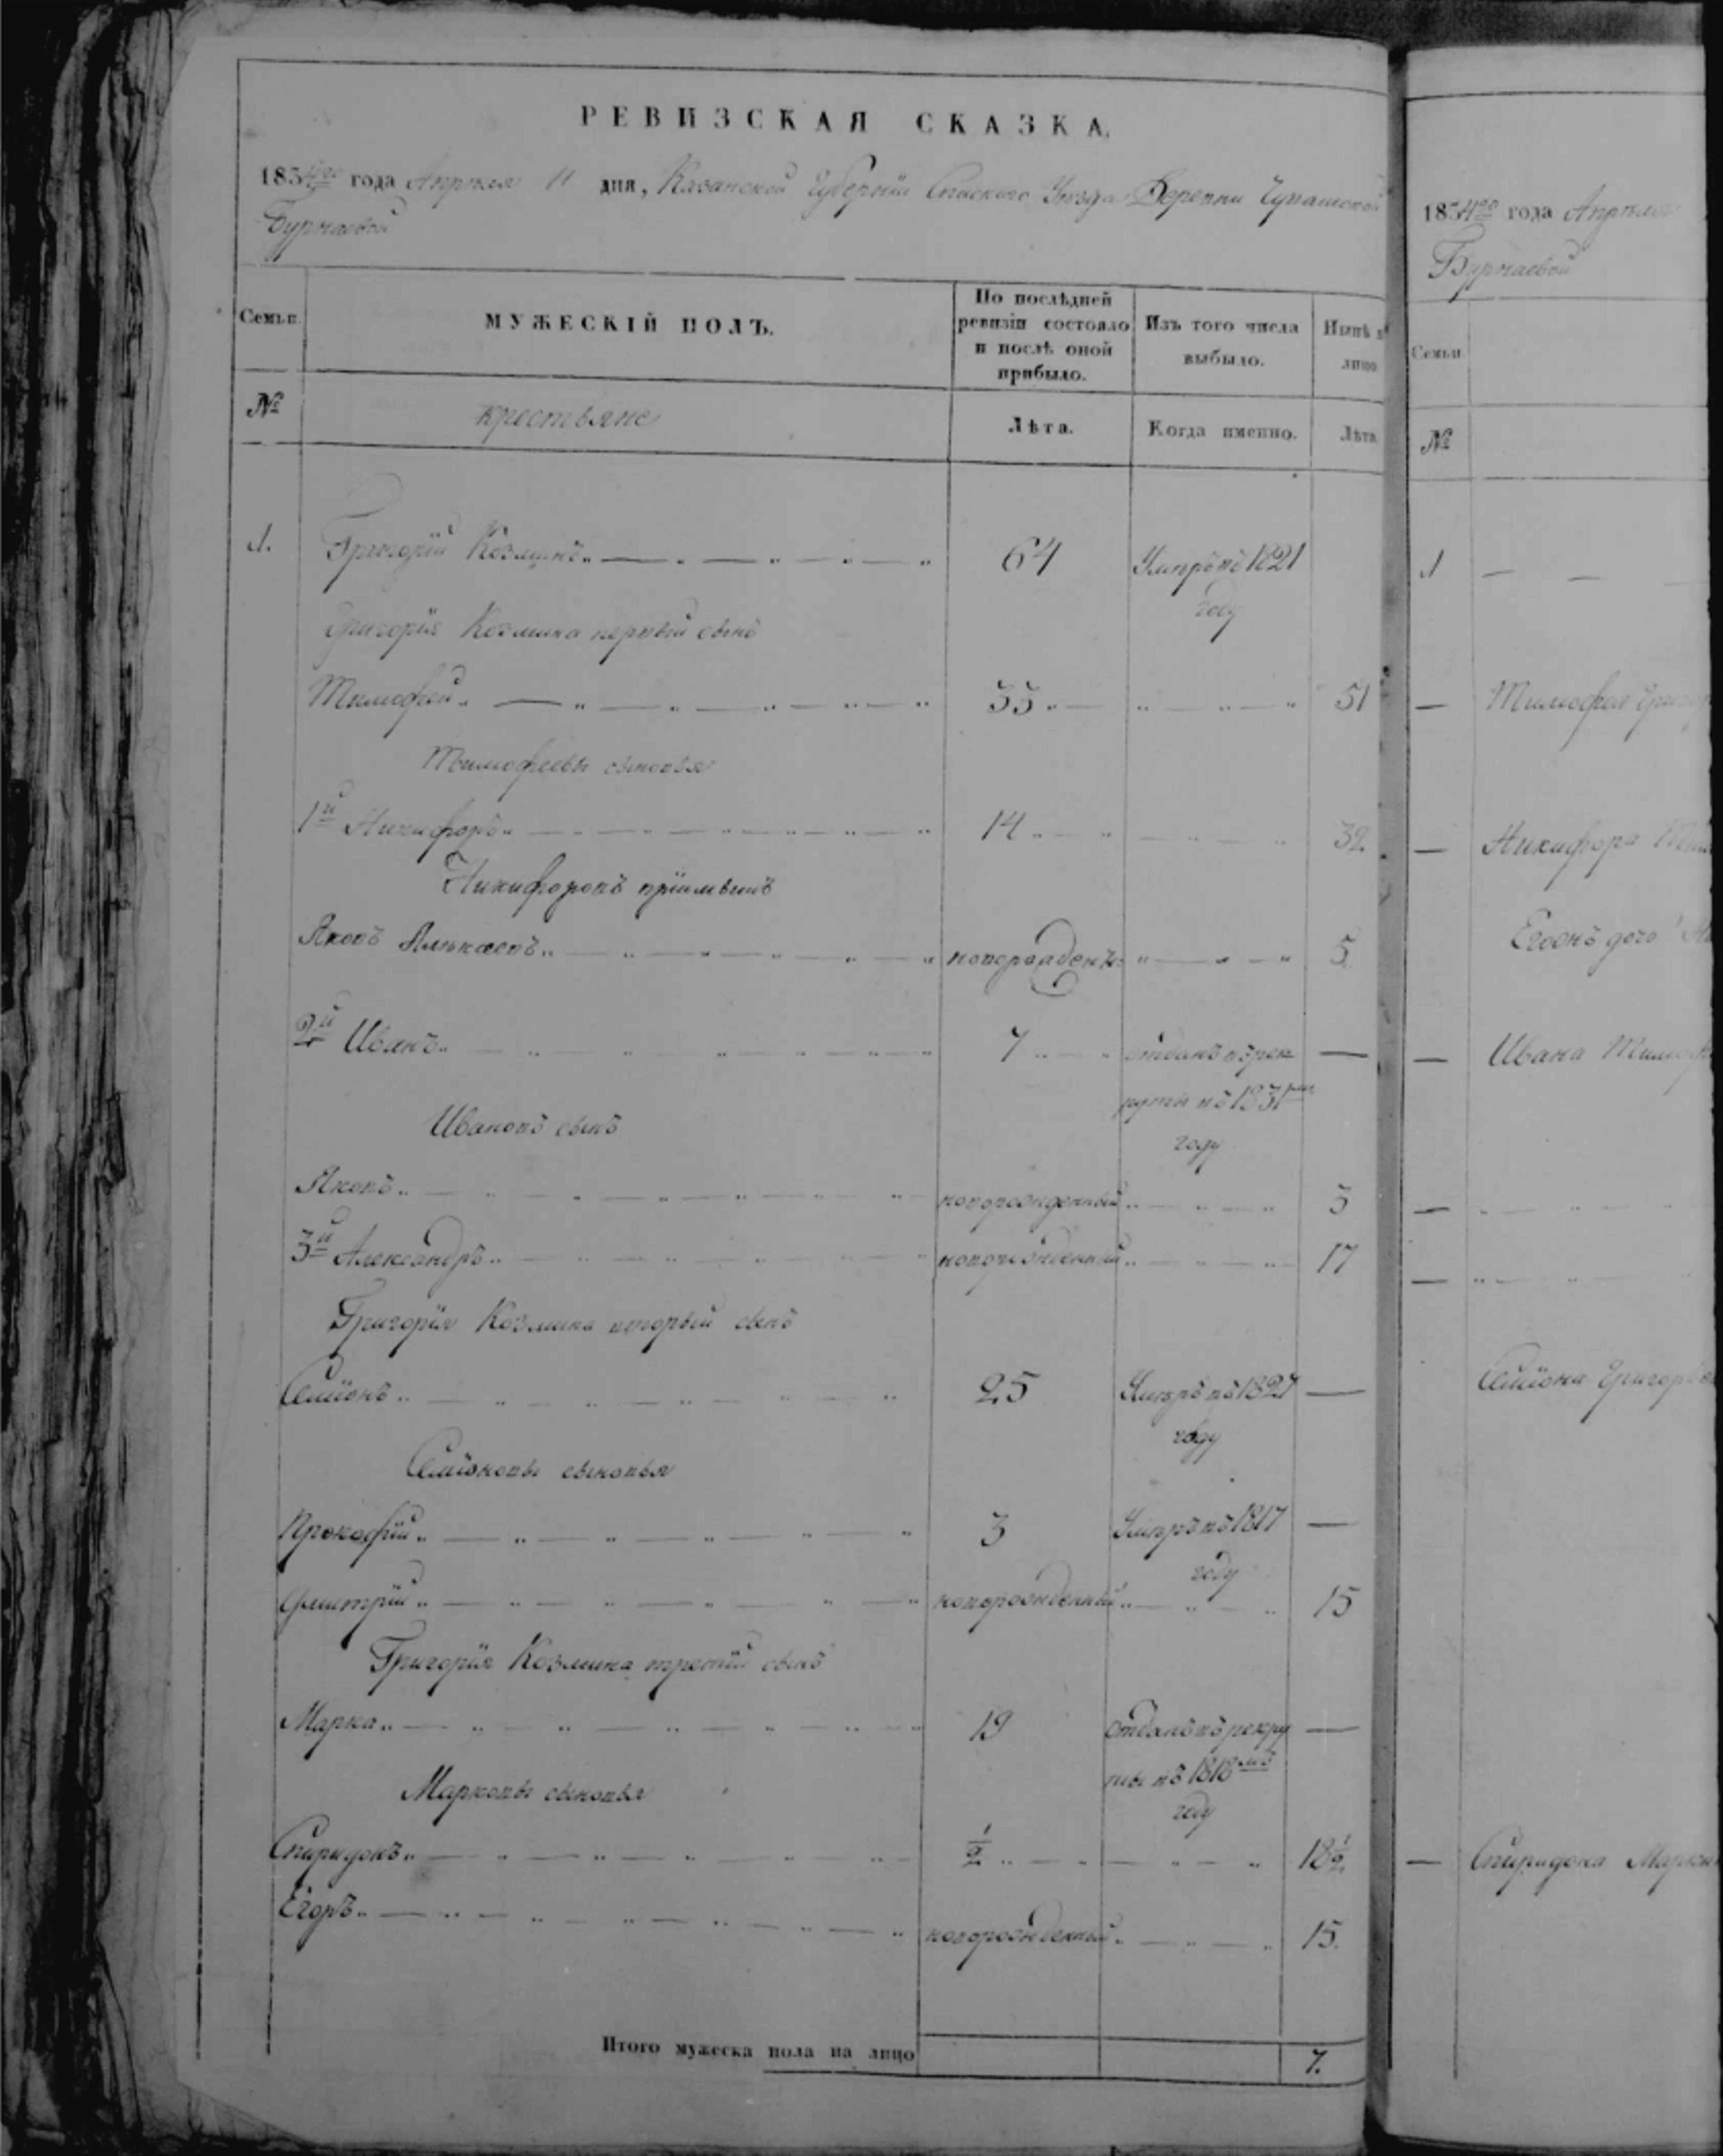 РЕВИЗСКАЯ СКАЗКА.
1834го года Апреля 11 дня, Казанской Губернии Спаского Уезда Деревни Чувашской
Бурнаевой
Семьи.
МУЖЕСКІЙ ПОЛЪ.
По послѣдней ревизіи состояло и послѣ оной прибыло.
Изъ того числа выбыло.
Нынѣ в лицо
№
крестьяне
Лѣта.
Когда именно.
Лѣта
1. Григорій Козминъ 64 Умеръ въ 1821
году
Григорія Козмина первый сынъ
Тимофей 33 51
Тимофеевы сыновья
1й Никифоръ 14 32
Никифоровъ пріимышъ
Яковъ новорожденъ 5
2й Иванъ 7 отданъ въ рек
руты въ 1831мъ
году
Ивановъ сынъ
Яковъ новорожденный 3
3й Александръ новорожденный 17
Григорія Козмина вторый сынъ
Семіонъ 25 Умеръ въ 1827
году
Семіоновы сыновья
Прокофій 3 Умеръ въ 1817
году
Дмитрій новорожденный 15
Григорія Козмина третій сынъ
Марко 19 отданъ въ рекру
ты въ 1818мъ
году
Марковы сыновья
Спиридонъ ½ 18½
Егоръ новорожденный 15.
Итого мужеска пола на лицо 7.
1834го года Апреля
Бурнаевой
Семьи
№
1
Тимофея Григор
Никифора Тим
Егоонъ дочь
Ивана Тимоф
Семіона Григорь
Спиридона Марк